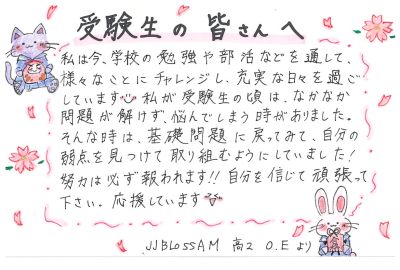 受験生の皆さんへ
私は今、学校の勉強や部活などを通して、
様々なことにチャレンジし、充実な日々を過ご
しています 私が受験生の頃は、なかなか
問題が解けず、悩んでしまう時がありました。
そんな時は、基礎問題に戻ってみて、自分の
弱点を見つけて取り組むようにしていました!
努力は必ず報われます!!自分を信じて頑張って
下さい。応援しています
JJBLOSSAM 高2 O.Eより